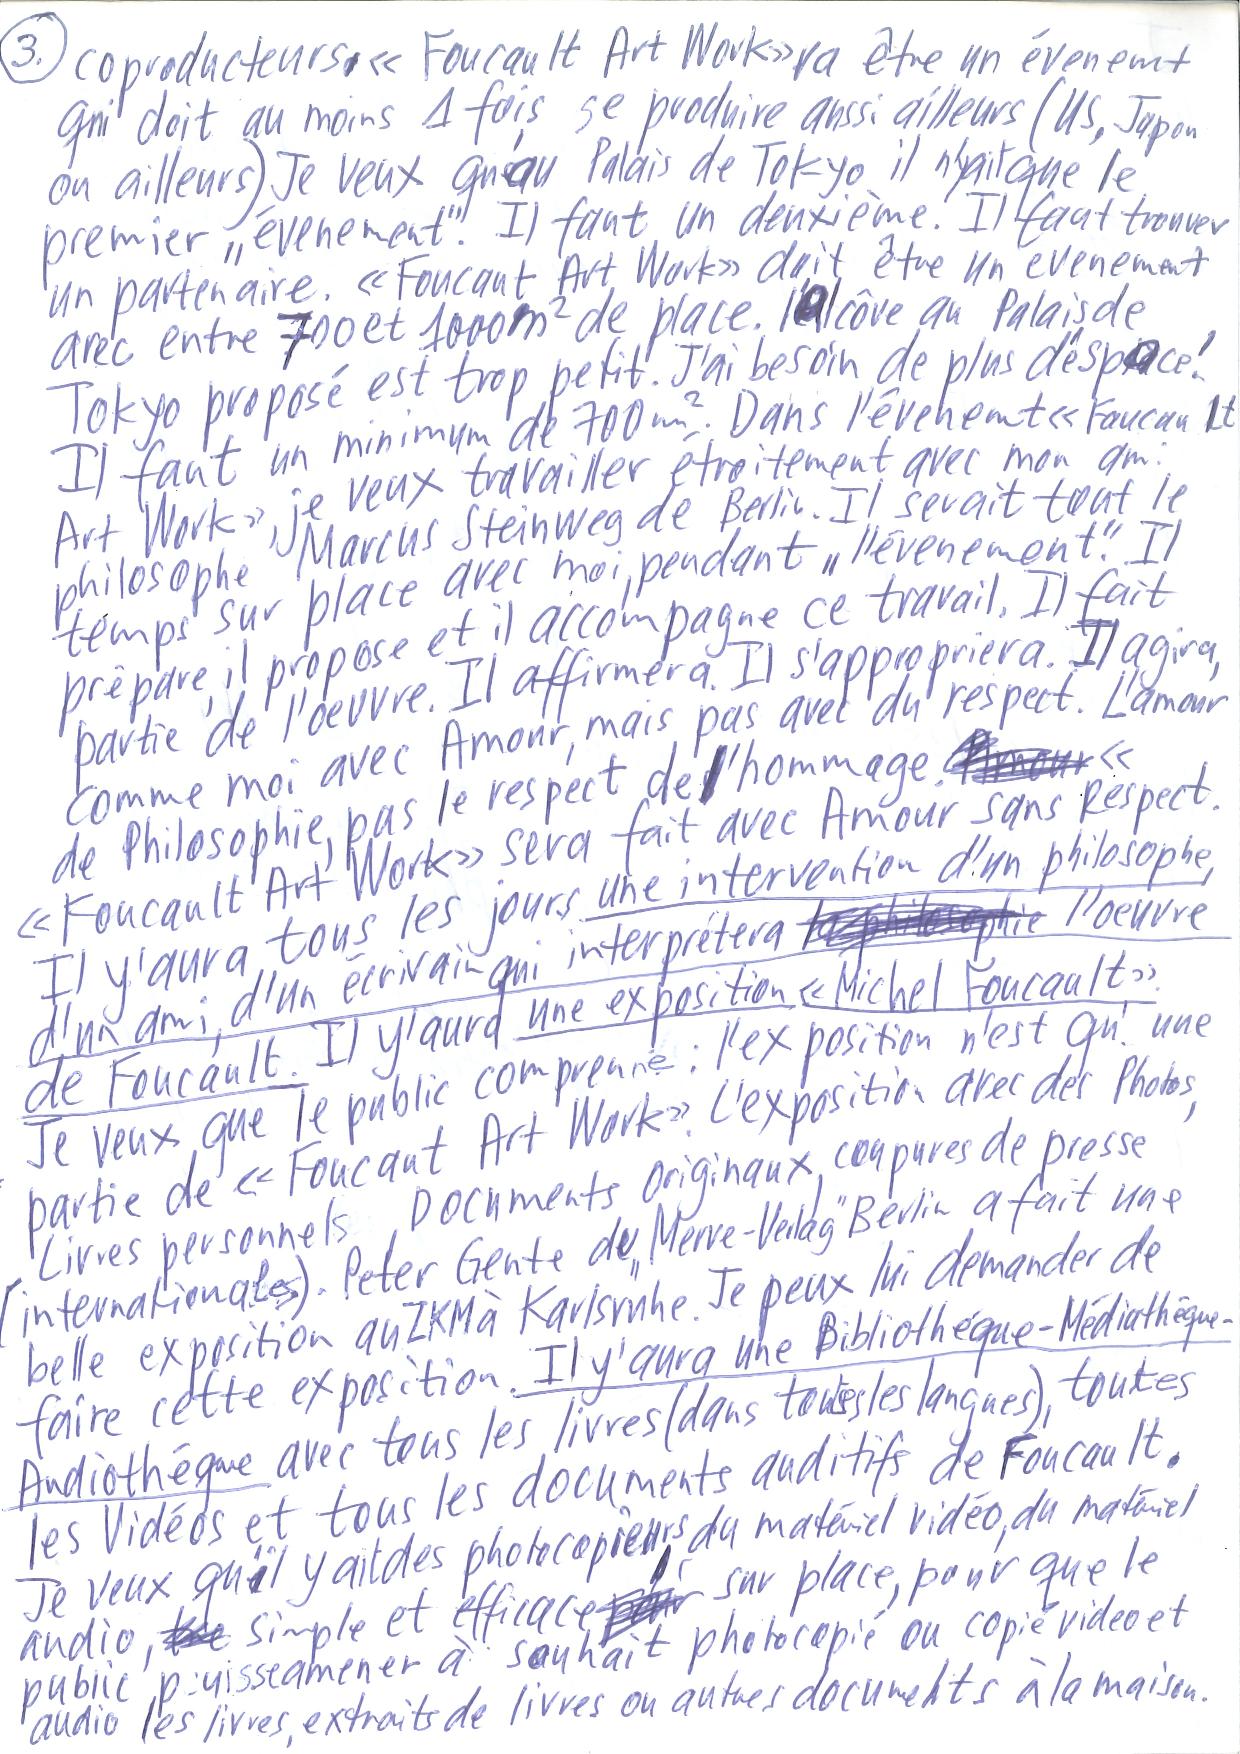 3. coproducteurs. « Foucault Art Work» va être un évenemt
qui doit au moins 1 fois se produire aussi ailleurs (US, Japon
ou ailleurs) Je veux qu'au Palais de Tokyo il n'y ait que le
premier „évenement". Il faut un deuxième. Il faut trouver
un partenaire. «Foucaut Art Work» doit être un evenement
avec entre 700 et 1000m² de place. l'alcôve au Palais de
Tokyo proposé est trop petit. J'ai besoin de plus d'éspace!
Il faut un minimum de 700m². Dans l'évenemt «Foucault
Art Work», je veux travailler étroitement avec mon ami
philosophe Marcus Steinweg de Berlin. Il serait tout le
temps sur place avec moi, pendant „l'évenement". Il
prépare, il propose et il accompagne ce travail. Il fait
partie de l'oeuvre. Il affirmera. Il s'appropriera. Il agira,
comme moi avec Amour, mais pas avec du respect. L'amour
de Philosophie, pas le respect de l'hommage. «
«Foucault Art Work» sera fait avec Amour sans Respect.
Il y'aura tous les jours une intervention d'un philosophe,
d'un ami, d'un écrivain qui interprétera l'oeuvre
de Foucault. Il y'aura une exposition «Michel Foucault».
Je veux que le public comprenne : l'exposition n'est qu'une
partie de «Foucaut Art Work». L'exposition avec des Photos,
Livres personnels, Documents originaux, coupures de presse
(internationales). Peter Gente du „Merve-Verlag" Berlin a fait une
belle exposition au ZKM à Karlsruhe. Je peux lui demander de
faire cette exposition. Il y'aura une Bibliothéque-Médiathèque-
Audiothéque avec tous les livres (dans toutes les langues), toutes
les Vidéos et tous les documents auditifs de Foucault.
Je veux qu'il y ait des photocopieurs du matériel vidéo, du matériel
audio, simple et efficace sur place, pour que le
public puisse amener à souhait photocopié ou copié video et
audio les livres, extraits de livres ou autres documents à la maison.